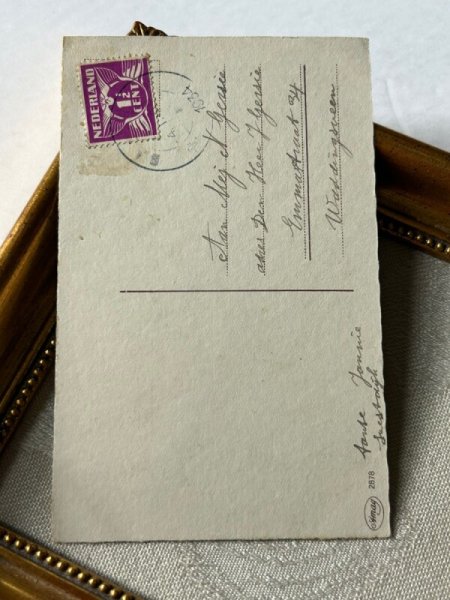 NEDERLAND
1½
CENT
Aan Mej A Gensie
adres Den Heer J Gensie
Emmastraat 24
Waddingsveen
tante Jannie
2878